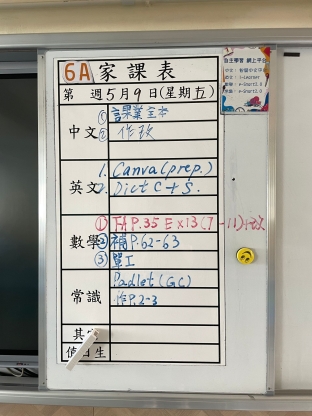 6A 家課表
第 週 5月9日(星期五)
中文 ① 課業全本
② 作改
英文 1. Canva (prep.)
2. Dict C + S.
數學 ① P.35 Ex13 (7-11) 改
② 補P.62-63
③ 單工
常識 Padlet (GC)
作P.2-3
其
值 生
自主學習 網上平台